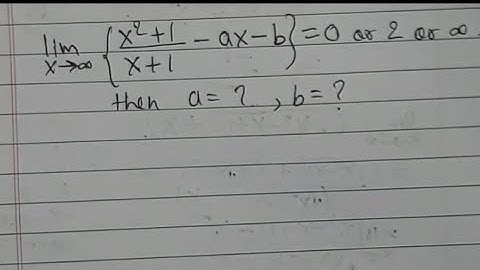 lim x→∞ {x²+1/x+1 - ax - b} = 0 or 2 or ∞.
then a = ? , b = ?